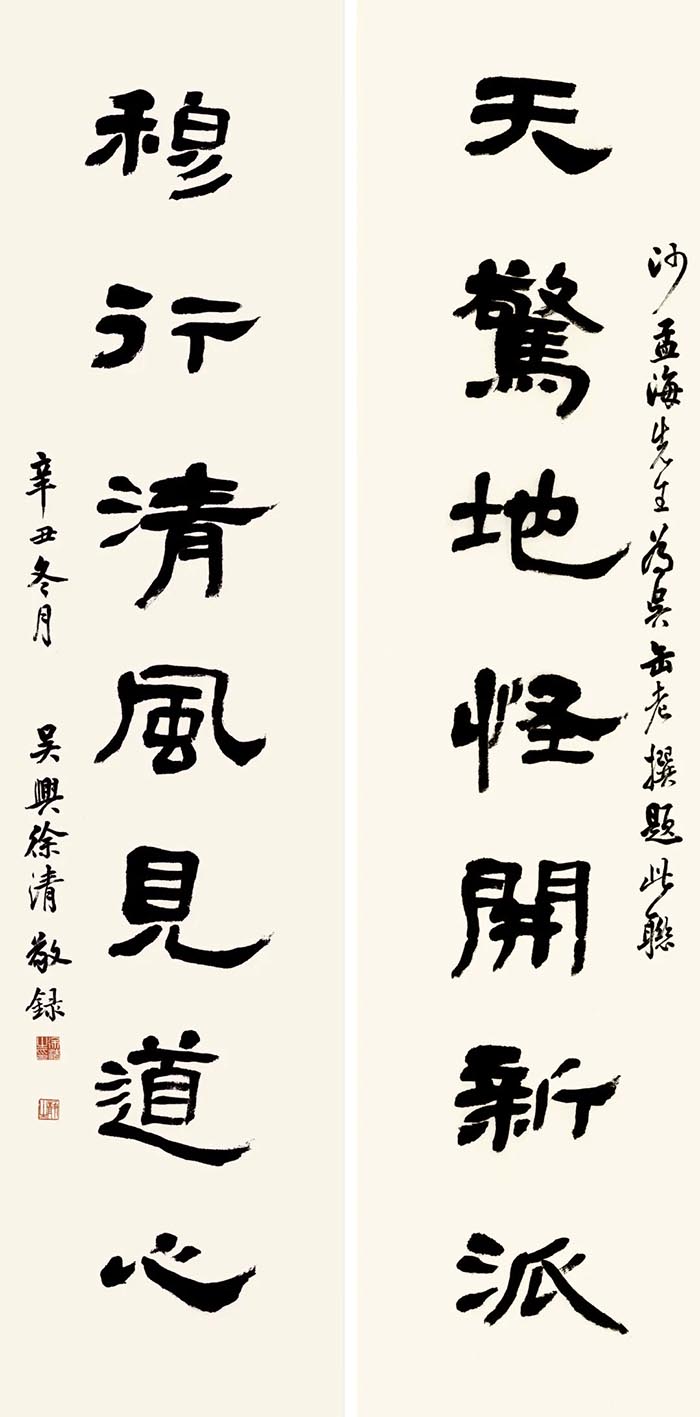 沙孟海先生為吳缶老撰題此聯
天驚地怪開新派
穆行清風見道心
辛丑冬月 吳興徐清敬録